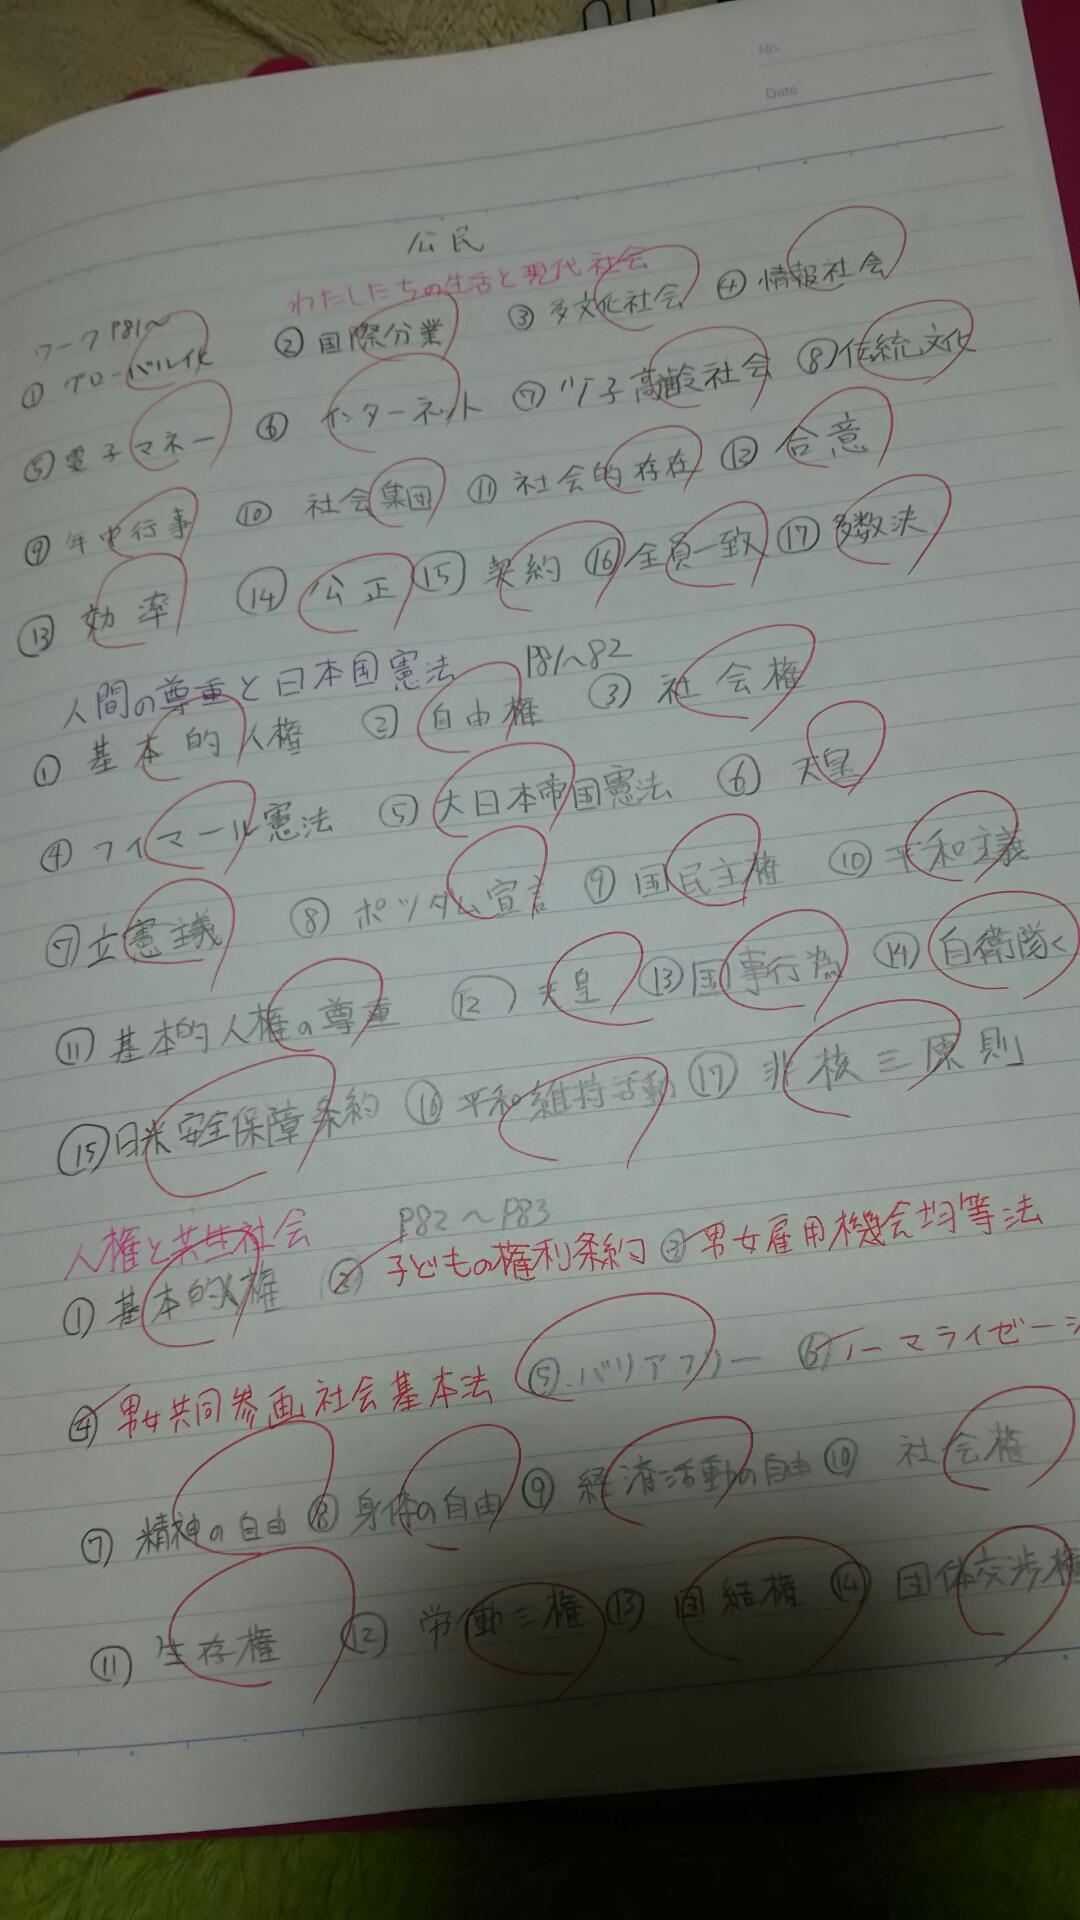 No.
Date
公民
わたしたちの生活と現代社会
ワークP81〜
①グローバル化 ②国際分業 ③多文化社会 ④情報社会
⑤電子マネー ⑥インターネット ⑦少子高齢社会 ⑧伝統文化
⑨年中行事 ⑩社会集団 ⑪社会的存在 ⑫合意
⑬効率 ⑭公正 ⑮契約 ⑯全員一致 ⑰多数決
人間の尊重と日本国憲法 P81〜82
①基本的人権 ②自由権 ③社会権
④ワイマール憲法 ⑤大日本帝国憲法 ⑥天皇
⑦立憲主義 ⑧ポツダム宣言 ⑨国民主権 ⑩平和主義
⑪基本的人権の尊重 ⑫天皇 ⑬国事行為 ⑭自衛隊
⑮日米安全保障条約 ⑯平和維持活動 ⑰非核三原則
人権と共生社会 P82〜P83
①基本的人権 ②子どもの権利条約 ③男女雇用機会均等法
④男女共同参画社会基本法 ⑤バリアフリー ⑥ノーマライゼーシ
⑦精神の自由 ⑧身体の自由 ⑨経済活動の自由 ⑩社会権
⑪生存権 ⑫労働三権 ⑬団結権 ⑭団体交渉権